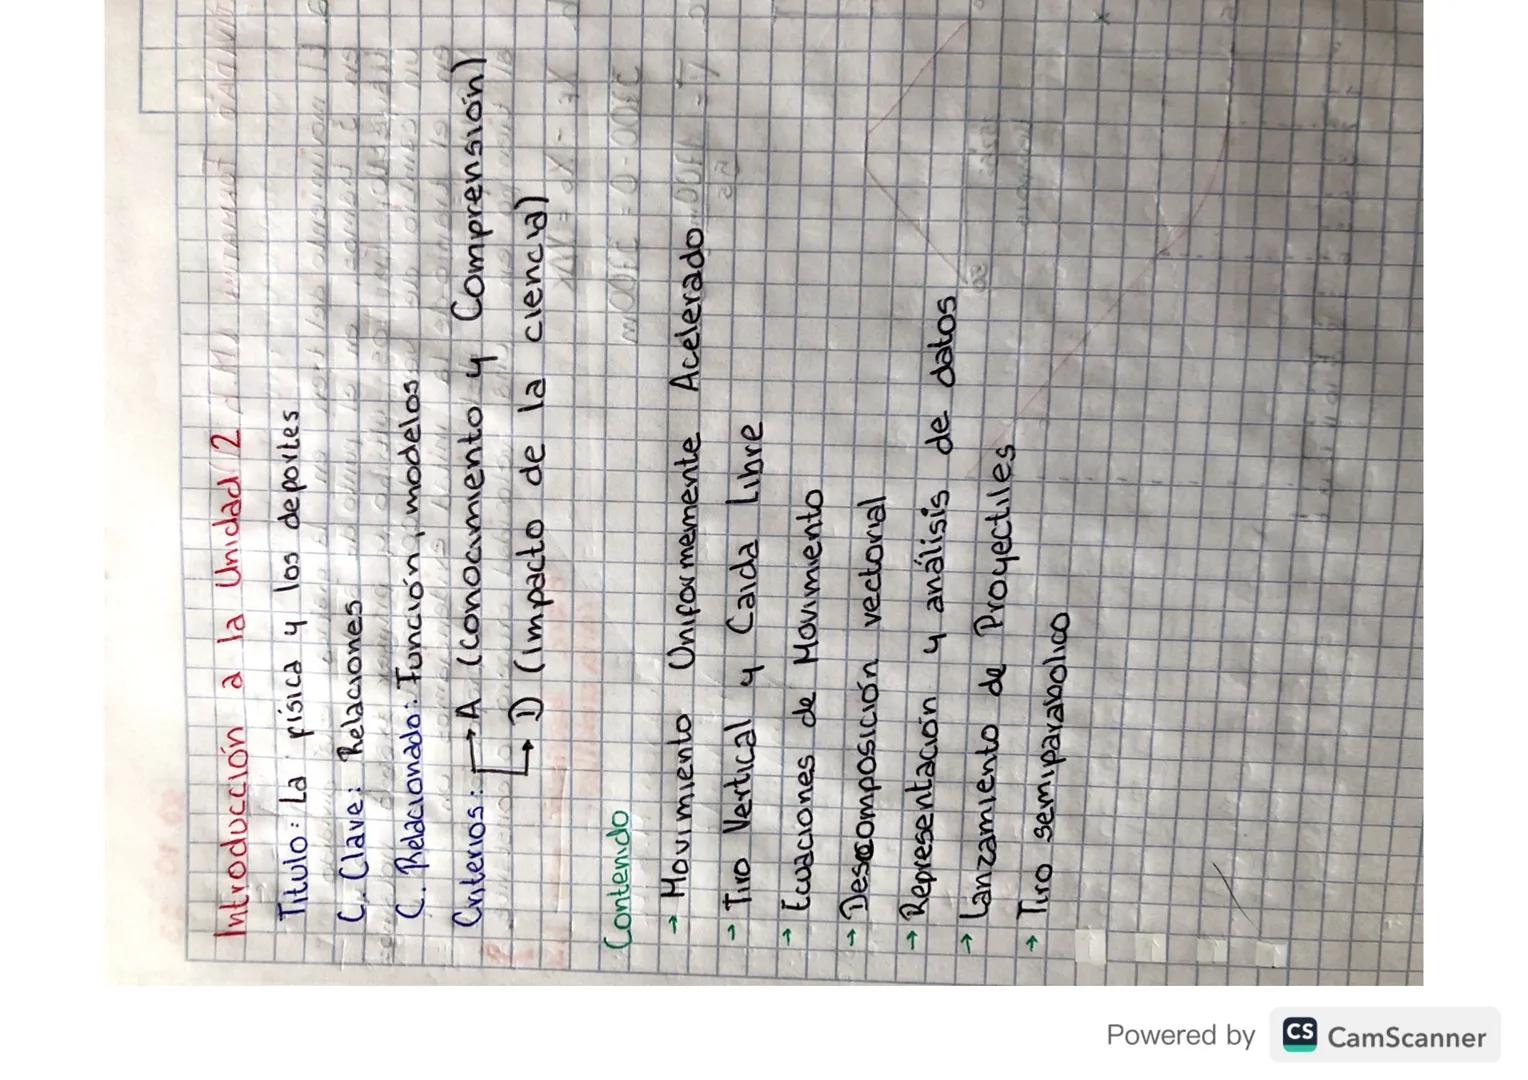 Introducción a la Unidad 2
Titulo: La física y los deportes
C. Clave: Relaciones
C. Relacionado: Función, modelos
Criterios: → A (conocimiento y Comprensión)
→ D (impacto de la ciencia)
Contenido
→ Movimiento Uniformemente Acelerado
→ Tiro Vertical y Caida Libre
→ Ecuaciones de Movimiento
→ Descomposición vectorial
→ Representación y análisis de datos
→ Lanzamiento de Proyectiles
→ Tiro semiparabolico
Powered by CS CamScanner